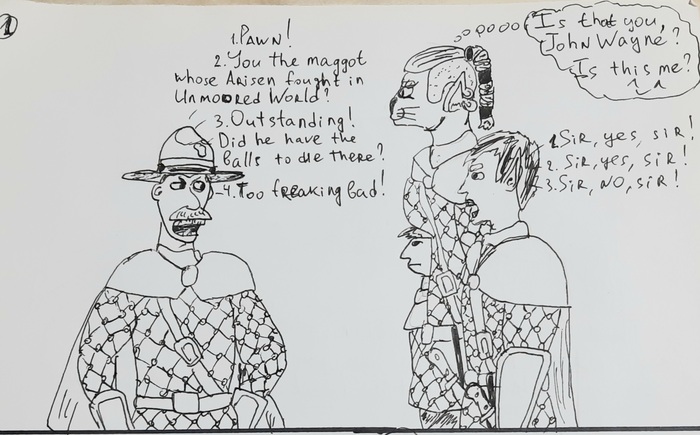 1
1. PAWN!
2. You the maggot
whose Arisen fought in
Unmoored World?
3. Outstanding!
Did he have the
balls to die there?
4. Too freaking bad!
Is that you,
John Wayne?
Is this me?
1. Sir, yes, sir!
2. Sir, yes, sir!
3. Sir, NO, sir!